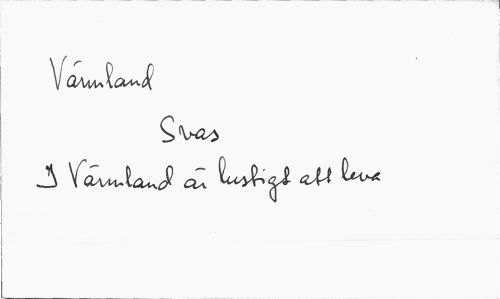 Värmland
Svas
I Värmland är lustigt att leva